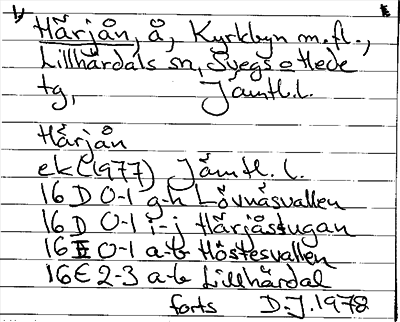 Härjån, å, Kyrkbyn m.fl.,
Lillhärdals sn, Svegs o Hede
tg, Jämtl.l.
Härjån
ek (1977) Jämtl. l.
16 D 0-1 g-h Lövnäsvallen
16 D 0-1 i-j Härjåstugan
16 E 0-1 a-b Höstesvallen
16 E 2-3 a-b Lillhärdal
forts D.J. 1978